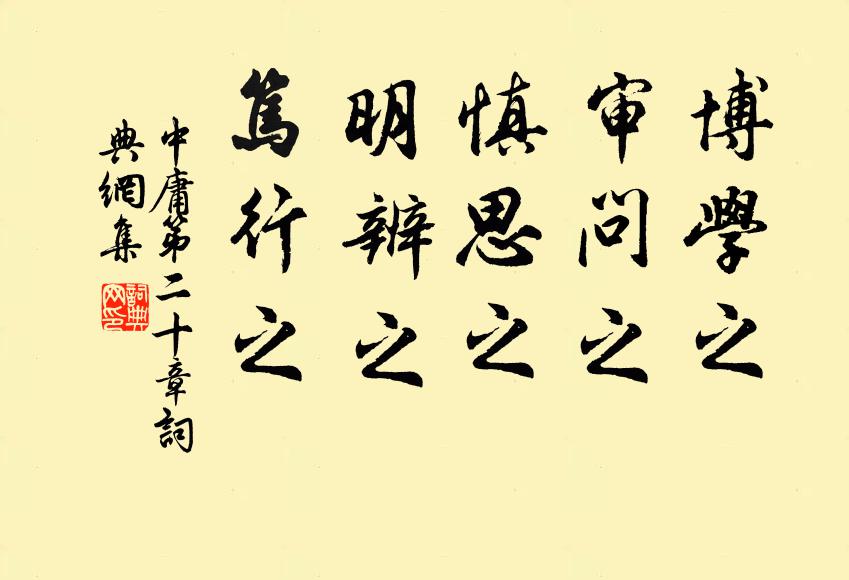 博學之
审問之
慎思之
明辨之
篤行之
中庸第二十章詞
典網集
詞典
网印